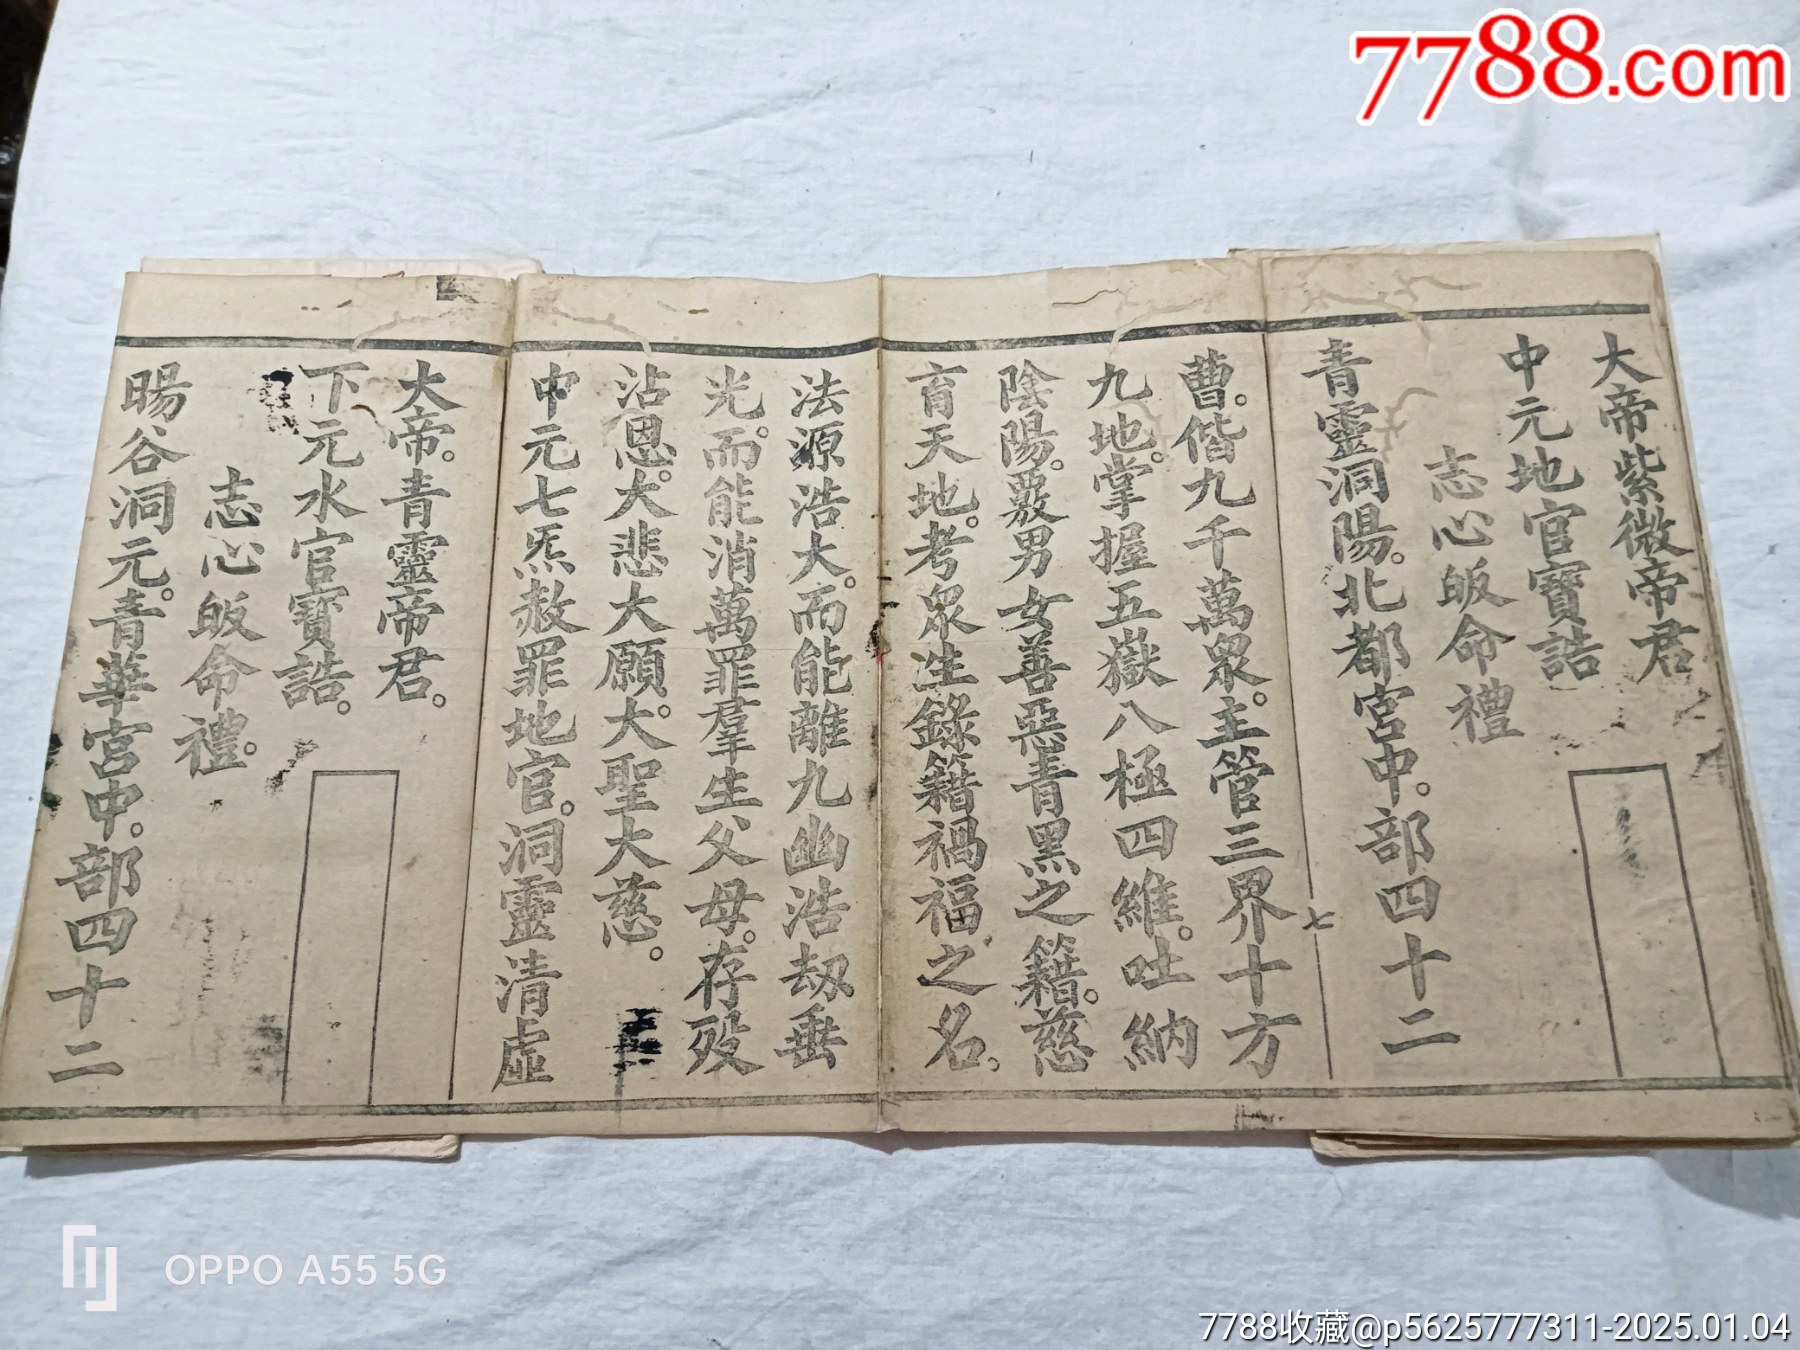 7788.com
大帝紫微帝君
中元地官寶誥
志心皈命禮
青靈洞陽。北都宮中。部四十二
曹。偕九千萬眾。主管三界十方
九地。掌握五嶽八極四維。吐納
陰陽。覈男女善惡青黑之籍。慈
育天地。考眾生錄籍禍福之名。
法源浩大。而能離九幽浩劫。垂
光。而能消萬罪羣生父母。存歿
沾恩。大悲大願。大聖大慈。
中元七炁赦罪地官。洞靈清虛
大帝。青靈帝君。
下元水官寶誥。
志心皈命禮。
暘谷洞元。青華宮中。部四十二
七
OPPO A55 5G
7788收藏@p5625777311-2025.01.04